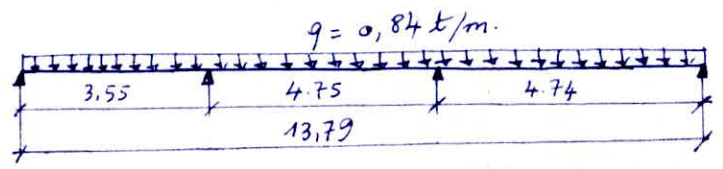 q = 0,84 t/m.
3,55 4.75 4.74
13,79